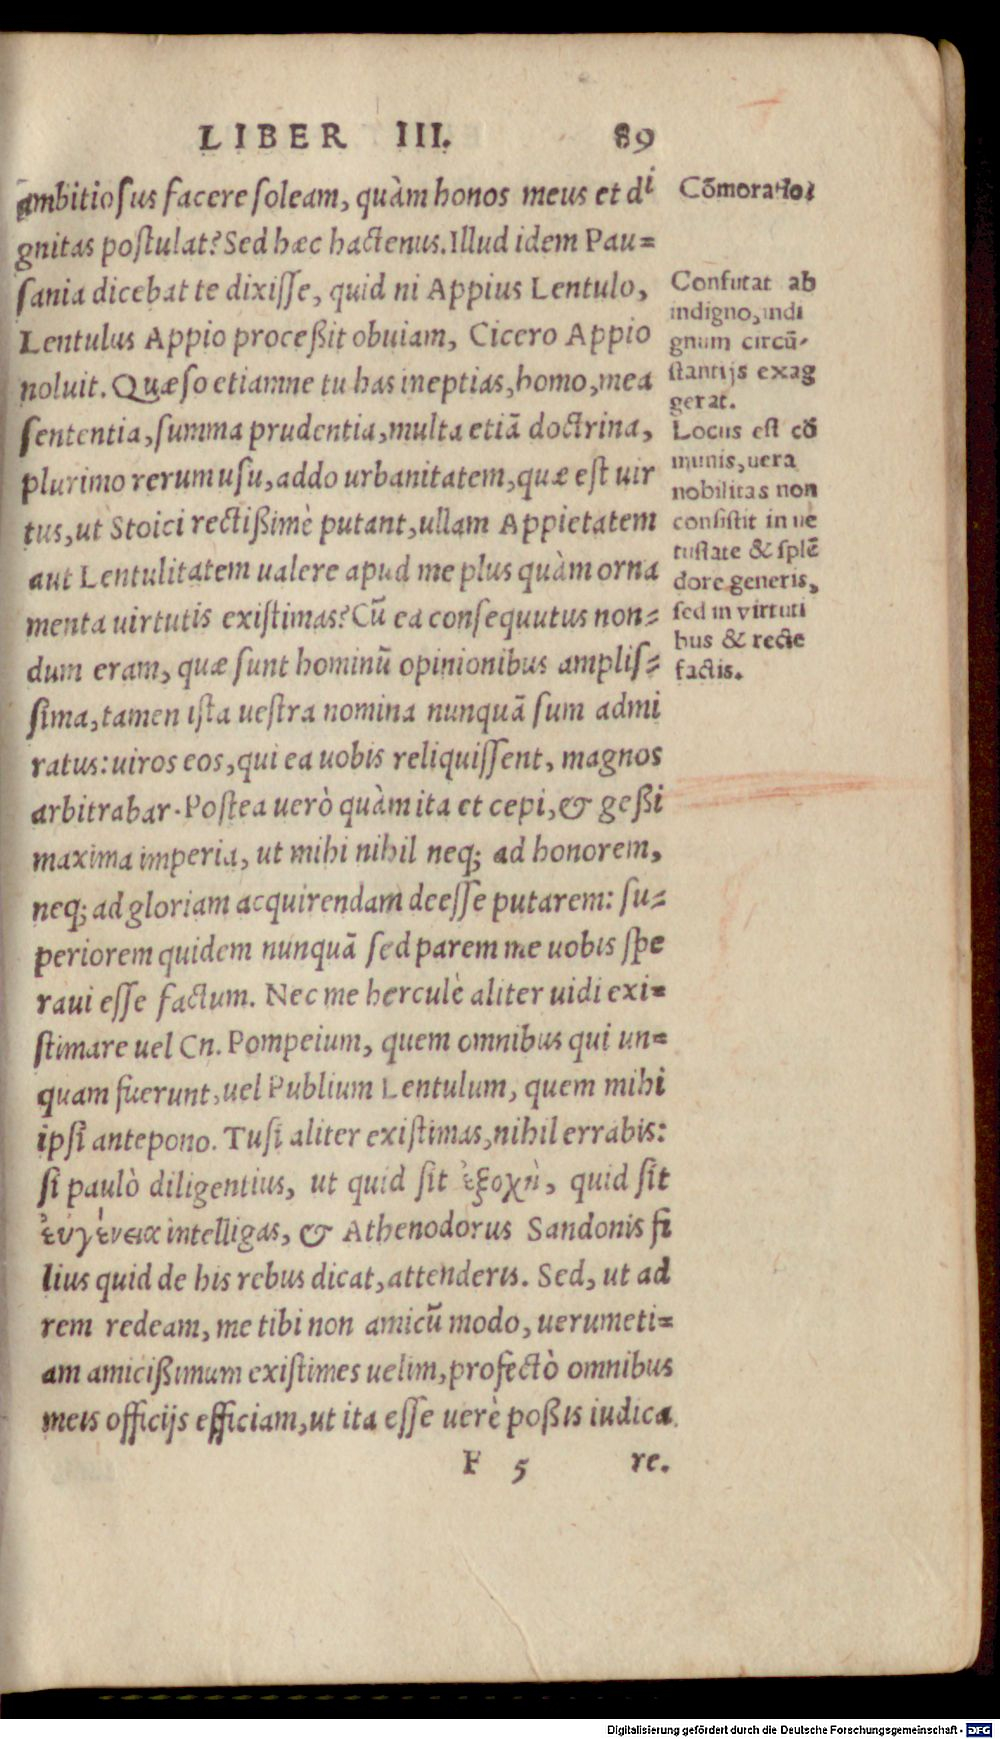 LIBER III. 89
ambitiosus facere soleam, quàm honos meus et di
gnitas postulat? Sed hæc hactenus. Illud idem Pau=
sania dicebat te dixisse, quid ni Appius Lentulo,
Lentulus Appio proceßit obuiam, Cicero Appio
noluit. Quæso etiamne tu has ineptias, homo, mea
sententia, summa prudentia, multa etiã doctrina,
plurimo rerum usu, addo urbanitatem, quæ est uir
tus, ut Stoici rectißimè putant, ullam Appietatem
aut Lentulitatem ualere apud me plus quàm orna
menta uirtutis existimas? Cũ ea consequutus non=
dum eram, quæ sunt hominũ opinionibus amplis=
sima, tamen ista uestra nomina nunquã sum admi
ratus: uiros eos, qui ea uobis reliquissent, magnos
arbitrabar. Postea uerò quàm ita et cepi, & geßi
maxima imperia, ut mihi nihil neq; ad honorem,
neq; ad gloriam acquirendam deesse putarem: su=
periorem quidem nunquã sed parem me uobis spe
raui esse factum. Nec me herculè aliter uidi exi=
stimare uel Cn. Pompeium, quem omnibus qui un=
quam fuerunt, uel Publium Lentulum, quem mihi
ipsi antepono. Tu si aliter existimas, nihil errabis:
si paulò diligentius, ut quid sit ἐξοχὴ, quid sit
ἐυγένεια intelligas, & Athenodorus Sandonis fi
lius quid de his rebus dicat, attenderis. Sed, ut ad
rem redeam, me tibi non amicũ modo, uerumeti=
am amicißimum existimes uelim, profectò omnibus
meis officijs efficiam, ut ita esse uerè poßis iudica
F 5 re.
Cõmoratio.
Confutat ab
indigno, indi
gnum circũ-
stantijs exag
gerat.
Locus est cõ
munis, uera
nobilitas non
consistit in ue
tustate & splẽ
dore generis,
sed in virtuti
bus & recte
factis.
Digitalisierung gefördert durch die Deutsche Forschungsgemeinschaft - DFG